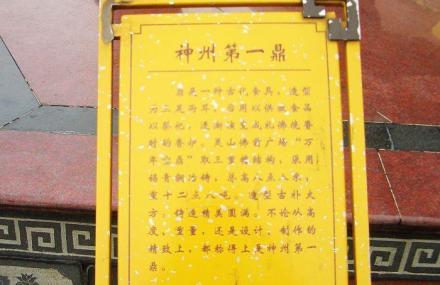 神州第一鼎
鼎是一种古代食具,造型
为三足两耳,后用以供祀食品
以祭祀,逐渐演变成礼佛烧香
时的香炉。灵山佛前广场“万
年宝鼎”取三重檐结构,采用
锡青铜冶铸,总高八点八米,
重十二点八吨,造型古朴大
方,铸造精美圆满。不论从高
度,重量,还是设计、制作的
精致上,都称得上是神州第一
鼎。